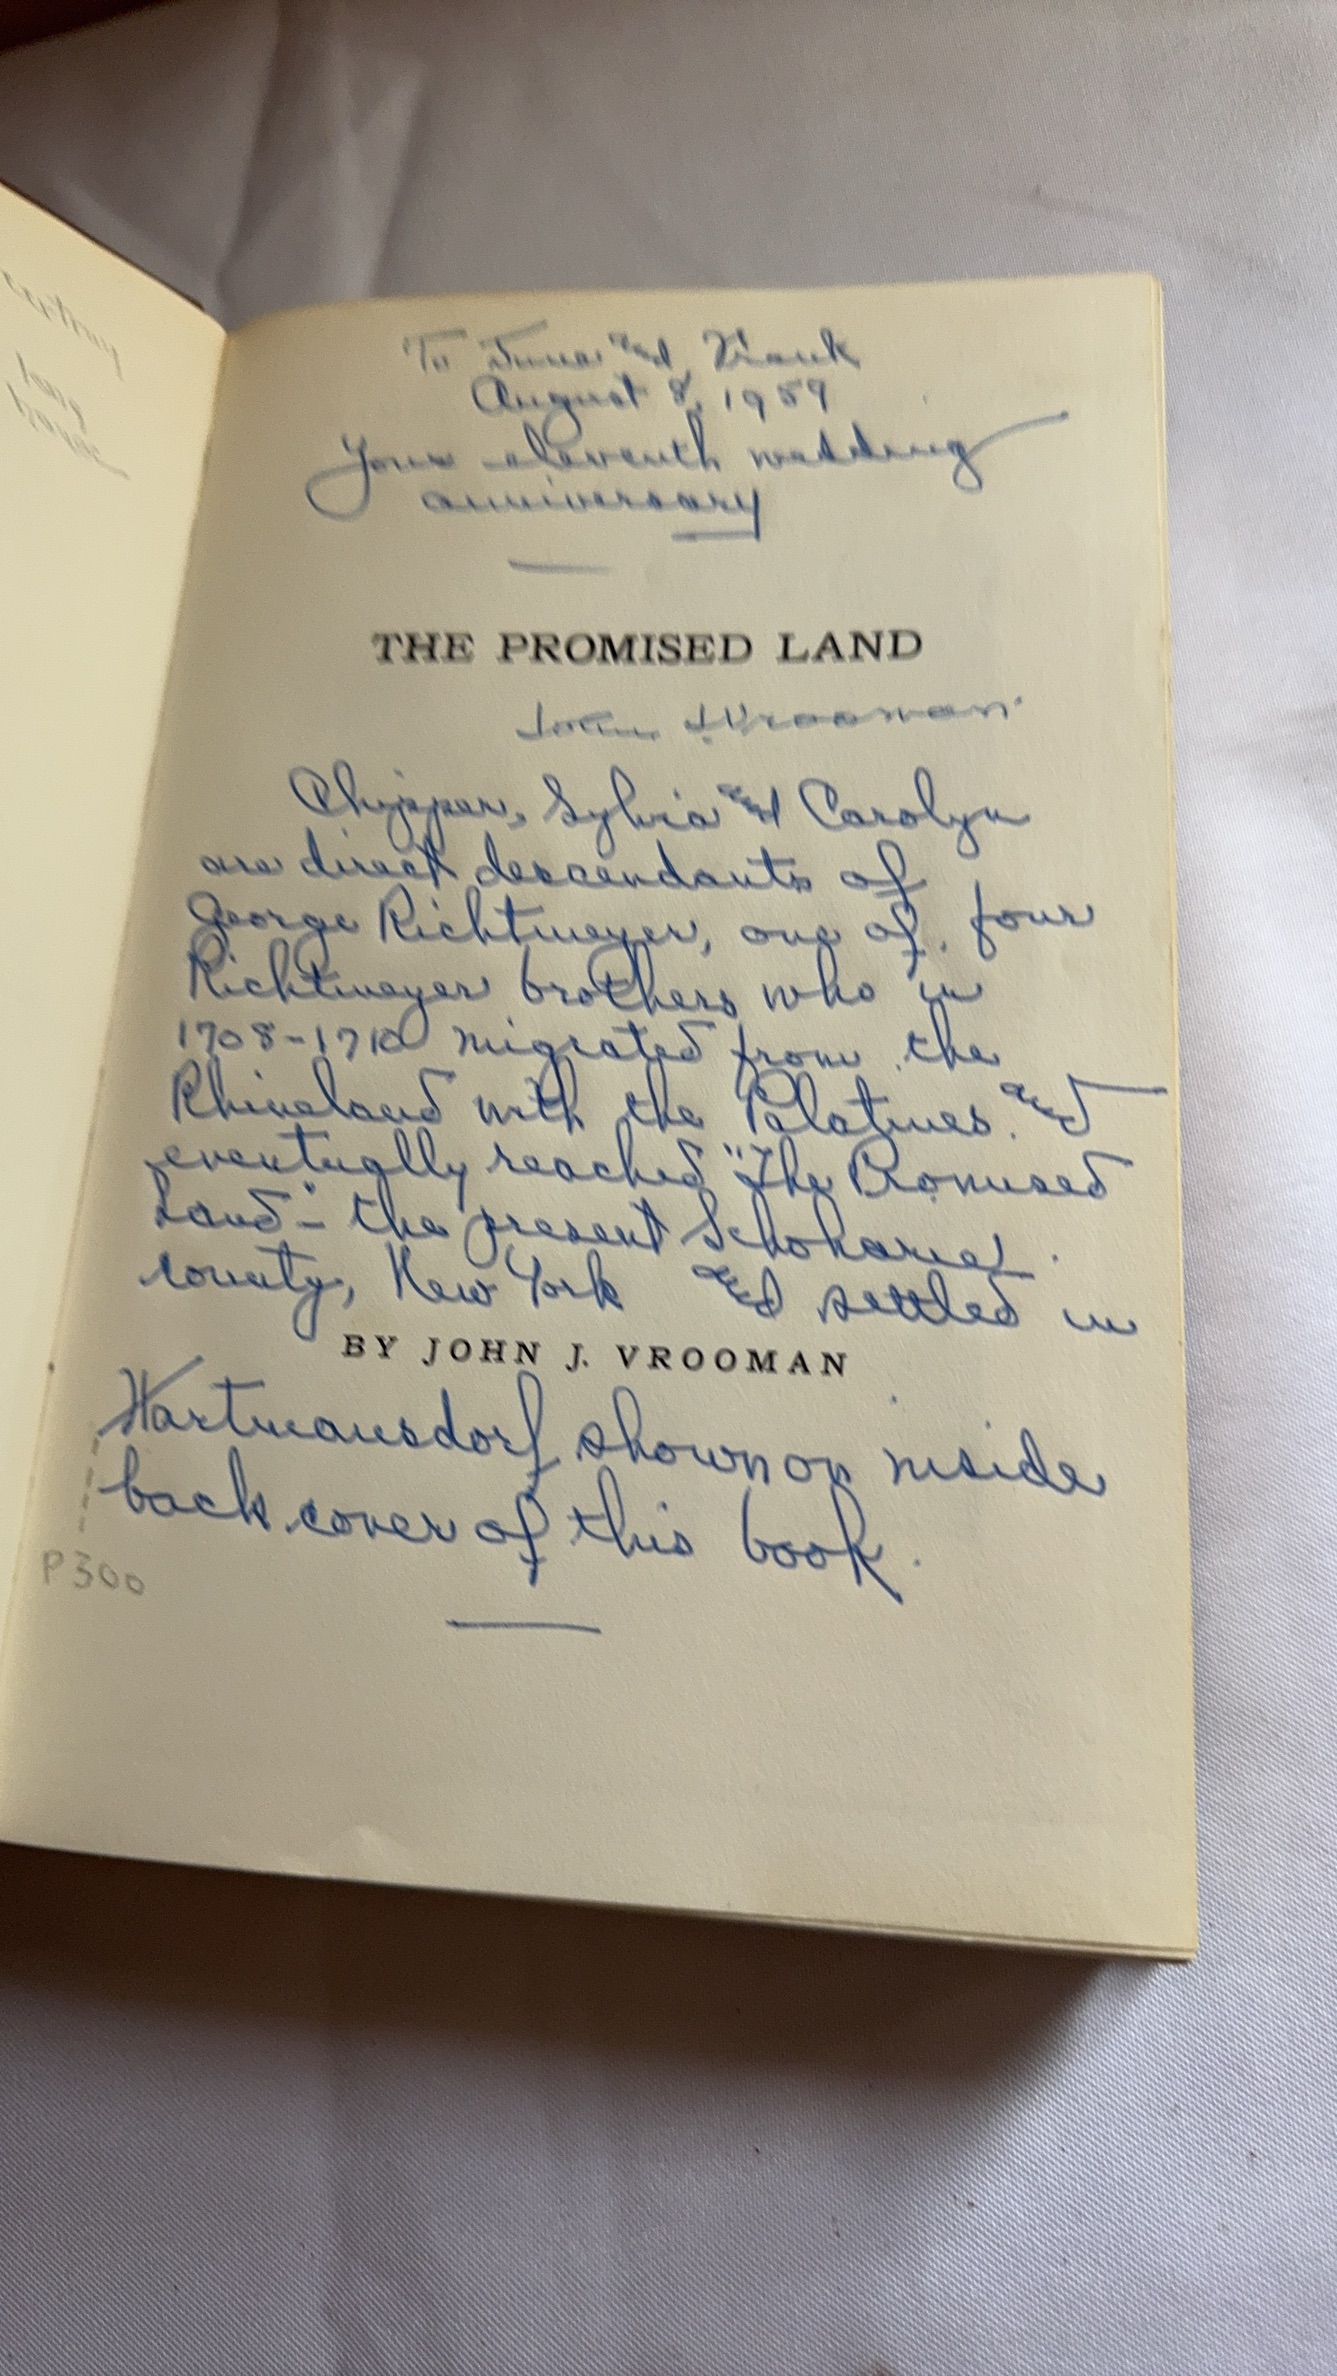 long
house
To June and Frank
August 8, 1959
Your eleventh wedding
anniversary
THE PROMISED LAND
John J. Vrooman
Chipper, Sylvia and Carolyn
are direct descendants of
George Richtmeyer, one of four
Richtmeyer brothers who in
1708-1710 migrated from the
Rhineland with the Palatines and
eventually reached "The Promised
Land" - the present Schoharie
County, New York and settled in
BY JOHN J. VROOMAN
Hartmansdorf shown on inside
back cover of this book.
P300